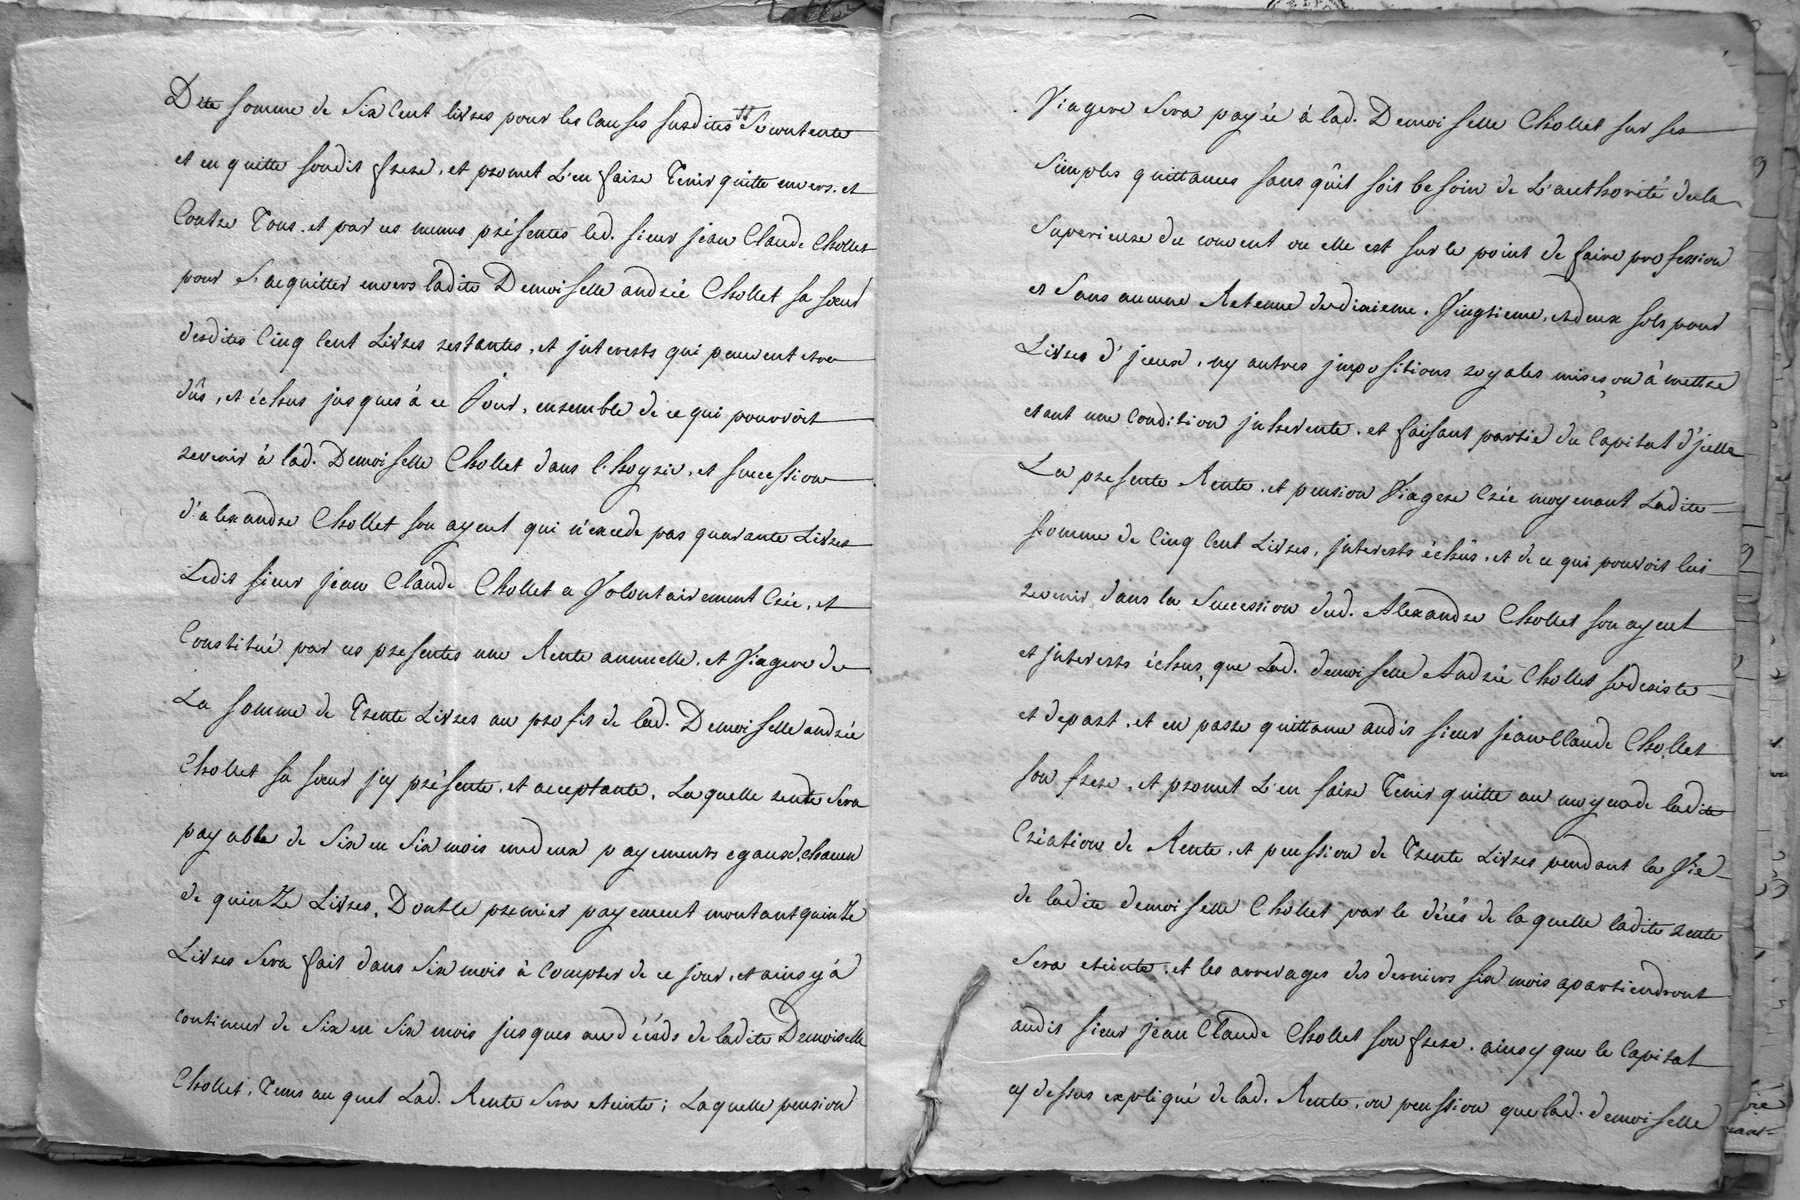 Dite somme de Six Cent livres pour les Causes susdites Se contente
et en quitte sondit frere, et promet L'en faire Tenir quitte envers, et
Contre Tous, et par ces memes présentes led. sieur jean Claude Chollet
pour S'acquitter envers ladite Demoiselle andrée Chollet sa sœur
desdites Cinq Cent Livres restantes, et jnterests qui peuvent etre
dûs, et échus jusques à ce Jour, ensemble de ce qui pourroit
revenir à lad. Demoiselle Chollet dans l'hoyrie, et succession
d'alexandre Chollet son ayeul qui n'excede pas quarante Livres
Ledit sieur jean Claude Chollet a Volontairement Créé, et
Constitué par ces presentes une Rente annuelle, et Viagere de
La somme de Trente Livres au profit de lad. Demoiselle andrée
Chollet sa sœur jcy présente, et acceptante, Laquelle rente sera
payable de Six en Six mois en deux payements egaux, chacun
de quinze Livres, Dont le premier payement montant quinze
Livres Sera fait dans Six mois à Compter de ce jour, et ainsy à
continuer de Six en Six mois jusques au décéds de ladite Demoiselle
Chollet, Tems au quel Lad. Rente Sera eteinte; Laquelle pension
Viagere Sera payée à lad. Demoiselle Chollet sur ses
Simples quittances sans qu'il soit besoin de L'authorité de la
Superieure du couvent ou elle est sur le point de faire profession
et Sans aucune Retenue de dixieme, Vingtieme, et deux sols pour
Livres d'jceux, ny autres jmpositions royales mises ou à mettre
etant une Condition jnherente, et faisant partie du Capital d'jcelle
La presente Rente, et pension Viagere Créé moyenant Ladite
Somme de Cinq Cent Livres, jnterests échûs, et de ce qui pouvoit lui
revenir dans la Succession dud. Alexandre Chollet son ayeul
et jnterests échus, que Lad. demoiselle Andrée Chollet se desiste
et depart, et en passe quittance audit sieur jean Claude Chollet
son frere, et promet L'en faire Tenir quitte au moyen de ladite
Création de Rente, et penssion de Trente Livres pendant la Vie
de ladite demoiselle Chollet par le décés de laquelle ladite rente
Sera eteinte, et les arrerages des derniers six mois apartiendront
audit sieur jean Claude Chollet son frere, ainsy que le Capital
cy dessus expliqué de lad. Rente, ou penssion que lad. demoiselle